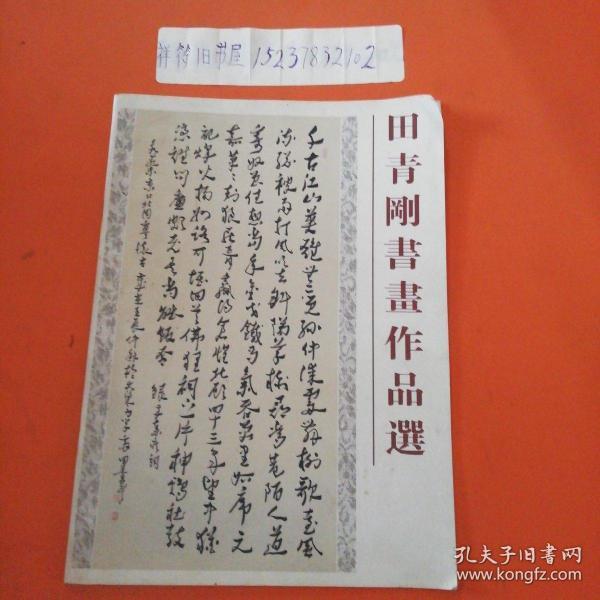 祥符旧书屋 15237832102
田青剛書畫作品選
千古江山英雄無覓孫仲謀處舞榭歌臺風
流總被雨打風吹去斜陽草樹尋常巷陌人道
寄奴曾住想當年金戈鐵馬氣吞萬里如虎元
嘉草草封狼居胥贏得倉皇北顧四十三年望中猶
記烽火揚州路可堪回首佛狸祠下一片神鴉社鼓
憑誰問廉頗老矣尚能飯否 錄辛棄疾詞
永遇樂京口北固亭懷古
孔夫子旧书网
www.kongfz.com